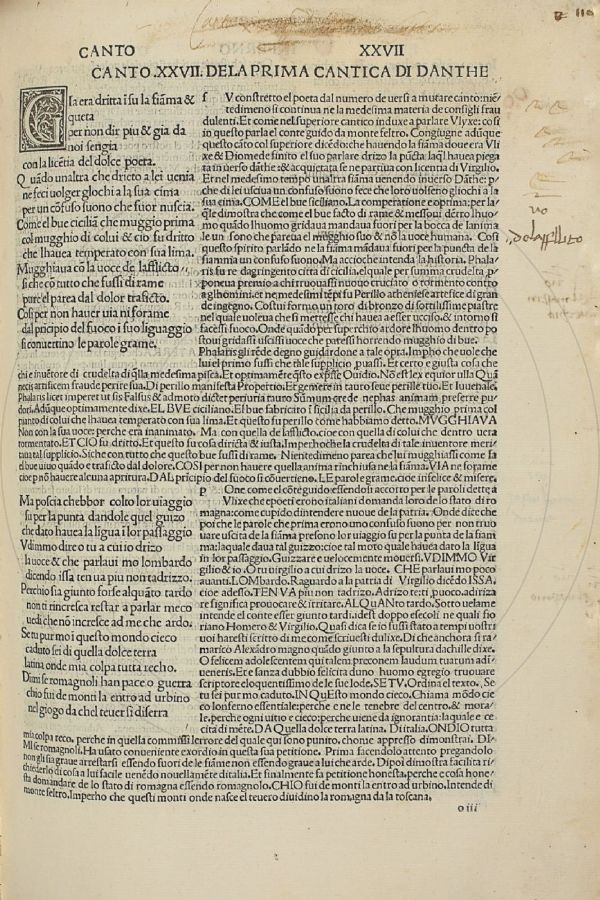 CANTO XXVII
CANTO .XXVII. DE LA PRIMA CANTICA DI DANTHE
GIa era dritta ĩ su la fiãma &
queta
per non dir piu & gia da
noi sengia
con la licẽtia del dolce poeta.
Quãdo unaltra che drieto a lei uenia
ne feci uolger glochi a la sua cima
per un cõfuso suono che fuor nuscia.
Come el bue cicilia̅ che muggio prima
col mugghio di colui & cio fu dritto
che lhauea temperato con sua lima.
Mugghiaua cõ la uoce de lafflicto
si che cõ tutto che fussi di rame
pure el parea dal dolor traficto.
Cosi per non hauer uia ni forame
dal pricipio del fuoco i suo liguaggio
si conuertino le parole grame.
f V constretto el poeta dal numero de uersi a mutare canto: niẽ/
tedimeno si continua ne la medesima materia de consigli frau
dulenti. Et come nel superiore cantico induxe a parlare Vlyxe: cosi
in questo parla el conte guido da monte feltro. Congiugne adũque
questo cãto col superiore dicẽdo: che hauendo la fiãma doue era Vli
xe & Diomede finito el suo parlare drizo la pũcta laql̃ hauea piega
ta in uerso dãthe: & acquietata se ne partiua con licentia di Virgilio.
Et nel medesimo tempo una altra fiãma uenendo inuerso Dãthe: p̃/
che di lei usciua un confuso suono fece che loro uolseno gliochi a la
sua cima. COME el bue siciliano. La comperatione e oprima: per la/
qle dimostra che come el bue facto di rame & messoui dẽtro lhuo/
mo quãdo lhuomo gridaua mandaua fuori per la bocca de lanima
le un sono che parea el mugghio suo & nõ la uoce humana. Cosi
questo spirito parlãdo ne la fiãma mãdaua fuori per la punta de la
fiamma un confuso suono. Ma accioche intenda la historia. Phala/
ris fu re dagringento citta di cicilia, el quale per summa crudelta, p/
poneua premio a chi truouassi nuouo cruciato o tormento contro
a glhomini, et ne medesimi tẽpi fu Perillo atheniese artefice di gran
de ingegno. Costui formo un toro di bronzo di sottilissime piastre
nel quale uoleua che si mettesse chi hauea a esser ucciso, & intorno si
facessi fuoco. Onde quãdo per superchio ardore lhuomo dentro po
stoui gridassi uscissi uoce che paressi horrendo mugghio di bue.
Phalaris gli rẽde degno guidardone a tale opra. Impho che uole che
lui el primo fussi che tale supplicio puassi. Et certo e giusta cosa che
chi e inuẽtore di crudelta di q̃lla medesima pisca. Et optimamẽte q̃sto expiste Ouidio. Nõ est lex equior ulla Quã
necis artificem fraude perire sua. Di perillo manifesta Propertio. Et gemere in tauro seue perille tuo. Et Iuuenale.
Phalaris licet imperet ut sis Falsus & admoto dictet periuria tauro Sũmum crede nephas animam preferre pu/
dori. Adũque optimamente dixe. EL BVE ciciliano. El bue fabricato ĩ sicilia da perillo. Che mugghio prima col
pianto di colui che lhauea temperato con sua lima. Et questo fu perillo come habbiamo detto. MVGGHIAVA
Non con la sua uoce: perche era inanimato. Ma con quella de lafflicto, cioe con quella di colui che dentro uera
tormentato. ET CIO fu dritto. Et questo fu cosa diricta & iusta. Imperhoche la crudelta di tale inuentore meri/
taua tal supplicio. Siche con tutto che questo bue fussi di rame. Nientedimeno parea che lui mugghiassi come fa
el bue uiuo quãdo e trafitto dal dolore. COSI per non hauere quella anima rĩchiusa ne la fiãma. VIA ne forame
cioe põ hauere alcuna apritura. DAL pricipio del fuoco si cõuertieno. LE parole grame. cioe infelice & misere.
Ma poscia chebbor colto lor uiaggio
su per la punta dandole quel guizo
che dato hauea la ligua i lor passaggio
Vdimmo dire o tu a cui io drizo
la uoce & che parlaui mo lombardo
dicendo issa ten ua piu non tadrizzo.
Perchio sia giunto forse alquãto tardo
non ti rincresca restar a parlar meco
uedi che nõ increscie ad me che ardo.
Se tu pur mo i questo mondo cieco
caduto sei di quella dolce terra
latina onde mia colpa tutta recho.
Dimi se romagnoli han pace o guerra
chio fui de monti la entro ad urbino
nel giogo da chel teuer si diserra
p One come el cõte guido essendosi accorto per le parole dette a
Vlixe che poeti erono italiani domanda loro de lo stato di ro
magna: come cupido dintendere nuoue de la patria. Onde dice che
poi che le parole che prima erono uno confuso suono per non truo
uare uscita de la fiama presono lor uiaggio su per la punta de la fiam
ma: la quale daua tal guizzo: cioe tal moto qual hauea dato la ligua
in lor passaggio. Guizzare e uelocemente mouersi. VDIMMO Vir
gilio & io. O tu uirgilio a cui drizo la uoce. CHE parlaui mo poco
auanti. LOMbardo. Raguardo a la patria di Virgilio dicẽdo ISSA.
cioe adesso. TEN VA piu non tadrizo. Adrizo te: ti puoco. adiriza
re significa prouocare & irritare. ALQVANto tardo. Sotto uelame
intende el conte esser giunto tardi. idest doppo esecoli ne quali fio
riano Homero & Virgilio. Quasi dica se io fussi stato a tempi uostri
uoi haresti scritto di me come scriuesti dulixe. Di che anchora si ra/
marico Alexãdro magno quãdo giunto a la sepultura dachille dixe.
O felicem adolescentem qui talem preconem laudum tuarum adi/
ueneris. Et e sanza dubbio felicita duno huomo egregio truouare
scriptore eloquentissimo de le sue lode. SE TV. Ordina el texto. Se
tu sei pur mo caduto. IN QVesto mondo cieco. Chiama mõdo cie
co lonferno essentiale: perche e ne le tenebre del centro. & mora/
le, perche ogni uitio e cieco: perche uiene da ignorantia: la quale e ce
cita di mẽte. DA Quella dolce terra latina. Di italia. ONDIO tutta
mia colpa reco. perche in quella commissi lerrore del quale qui sono punito. chome appresso dimostrai. DI/
MI se romagnoli. Ha usato conueniente exordio in questa sua petitione. Prima facendolo attento pregandolo
non gli sia graue arrestarsi essendo fuori de le fiãme non essendo graue a lui che arde. Dipoi dimostra facilita ri/
chiederlo di cosa a lui facile uenẽdo nouellamẽte ditalia. Et finalmente fa petitione honesta, perche e cosa hone/
sta domandare de lo stato di romagna essendo romagnolo. CHIO fui de monti la entro ad urbino. Intende di
monte feltro. Imperho che questi monti onde nasce el teuero diuidino la romagna da la toscana.
o iii